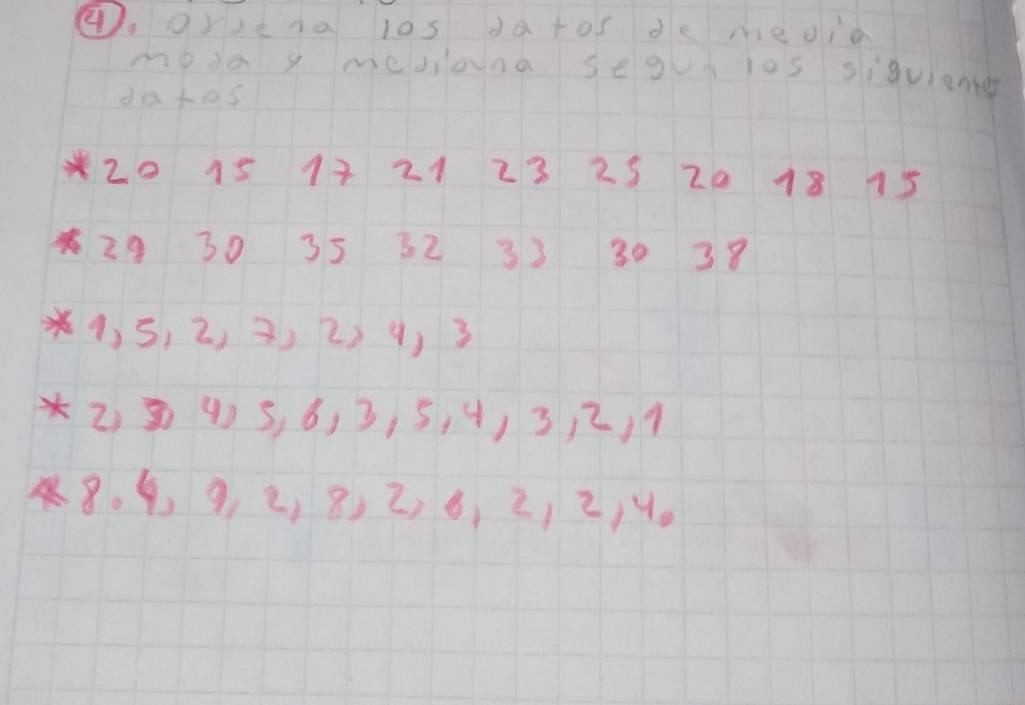 ④. Ordena los datos de media
moda y mediana segun los siguientes
datos
* 20 15 17 21 23 25 20 18 15
* 29 30 35 32 33 30 38
* 1, 5, 2, 7, 2, 4, 3
* 2, 3, 4, 5, 6, 3, 5, 4, 3, 2, 1
* 8. 4, 9, 2, 8, 2, 6, 2, 2, 4.